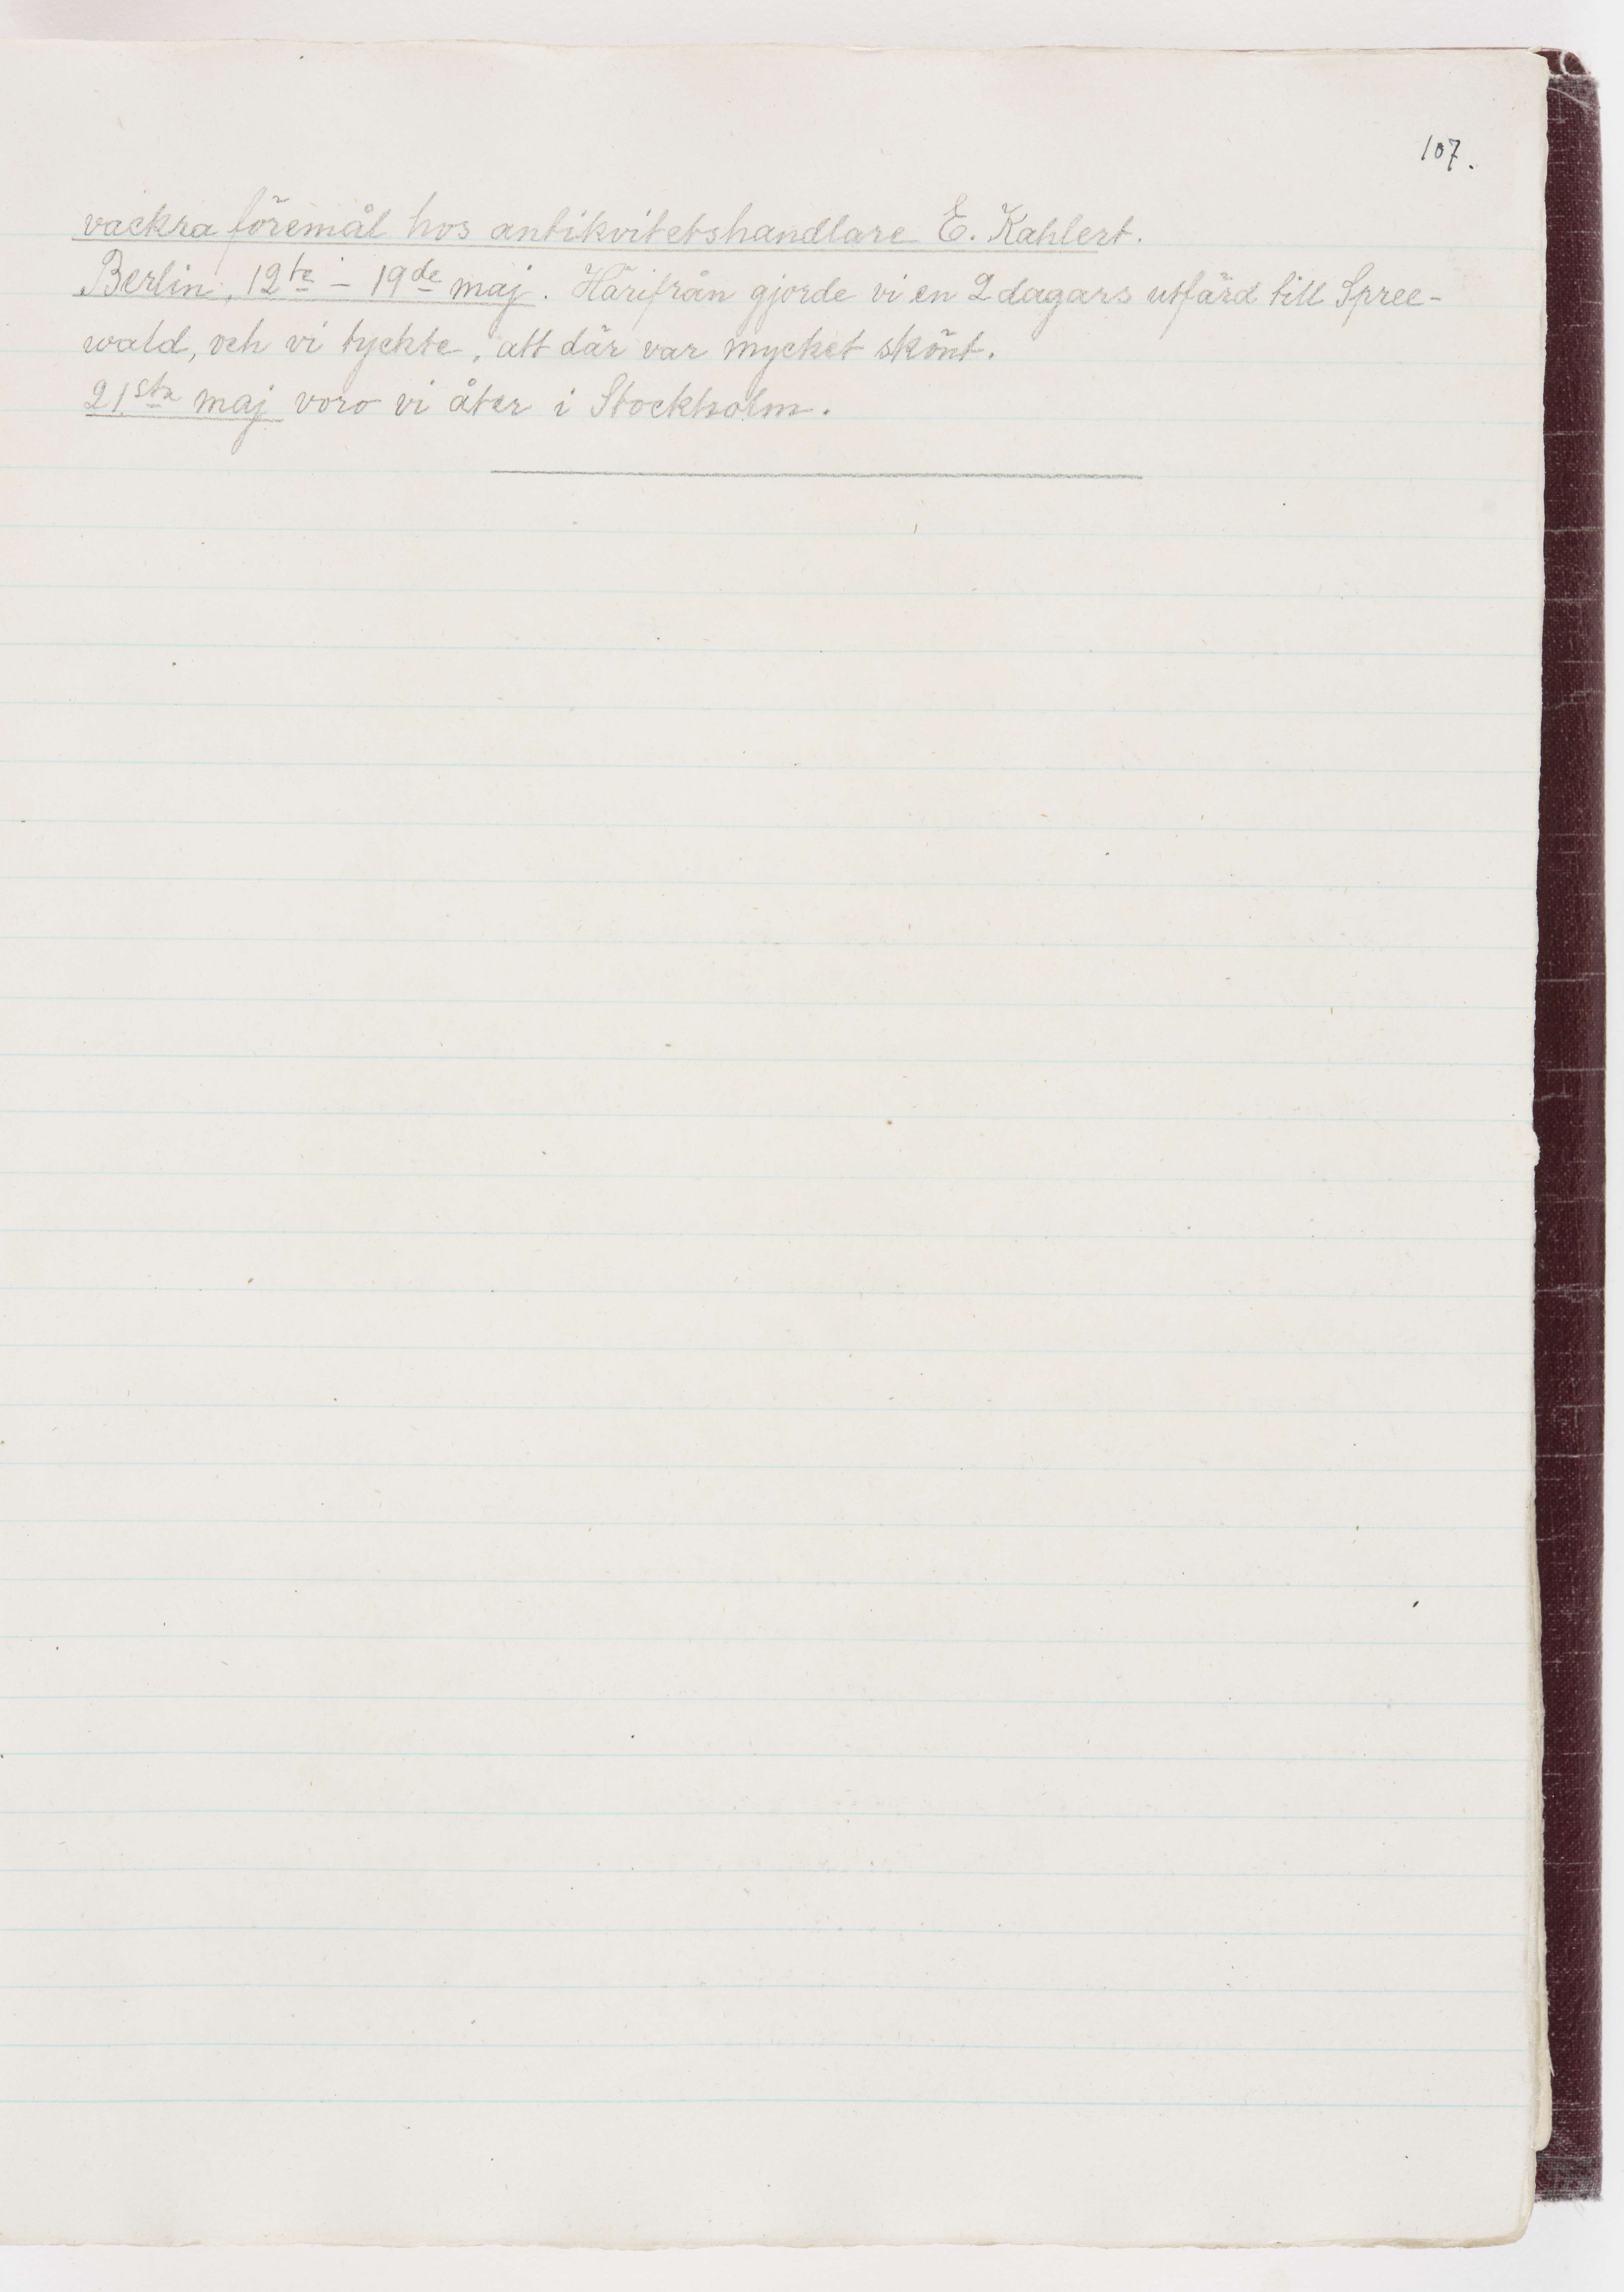 107.
vackra föremål hos antikvitetshandlare E. Kahlert.
Berlin, 12te – 19de maj. Härifrån gjorde vi en 2 dagars utfärd till Spree-
wald, och vi tyckte, att där var mycket skönt.
21sta maj voro vi åter i Stockholm.